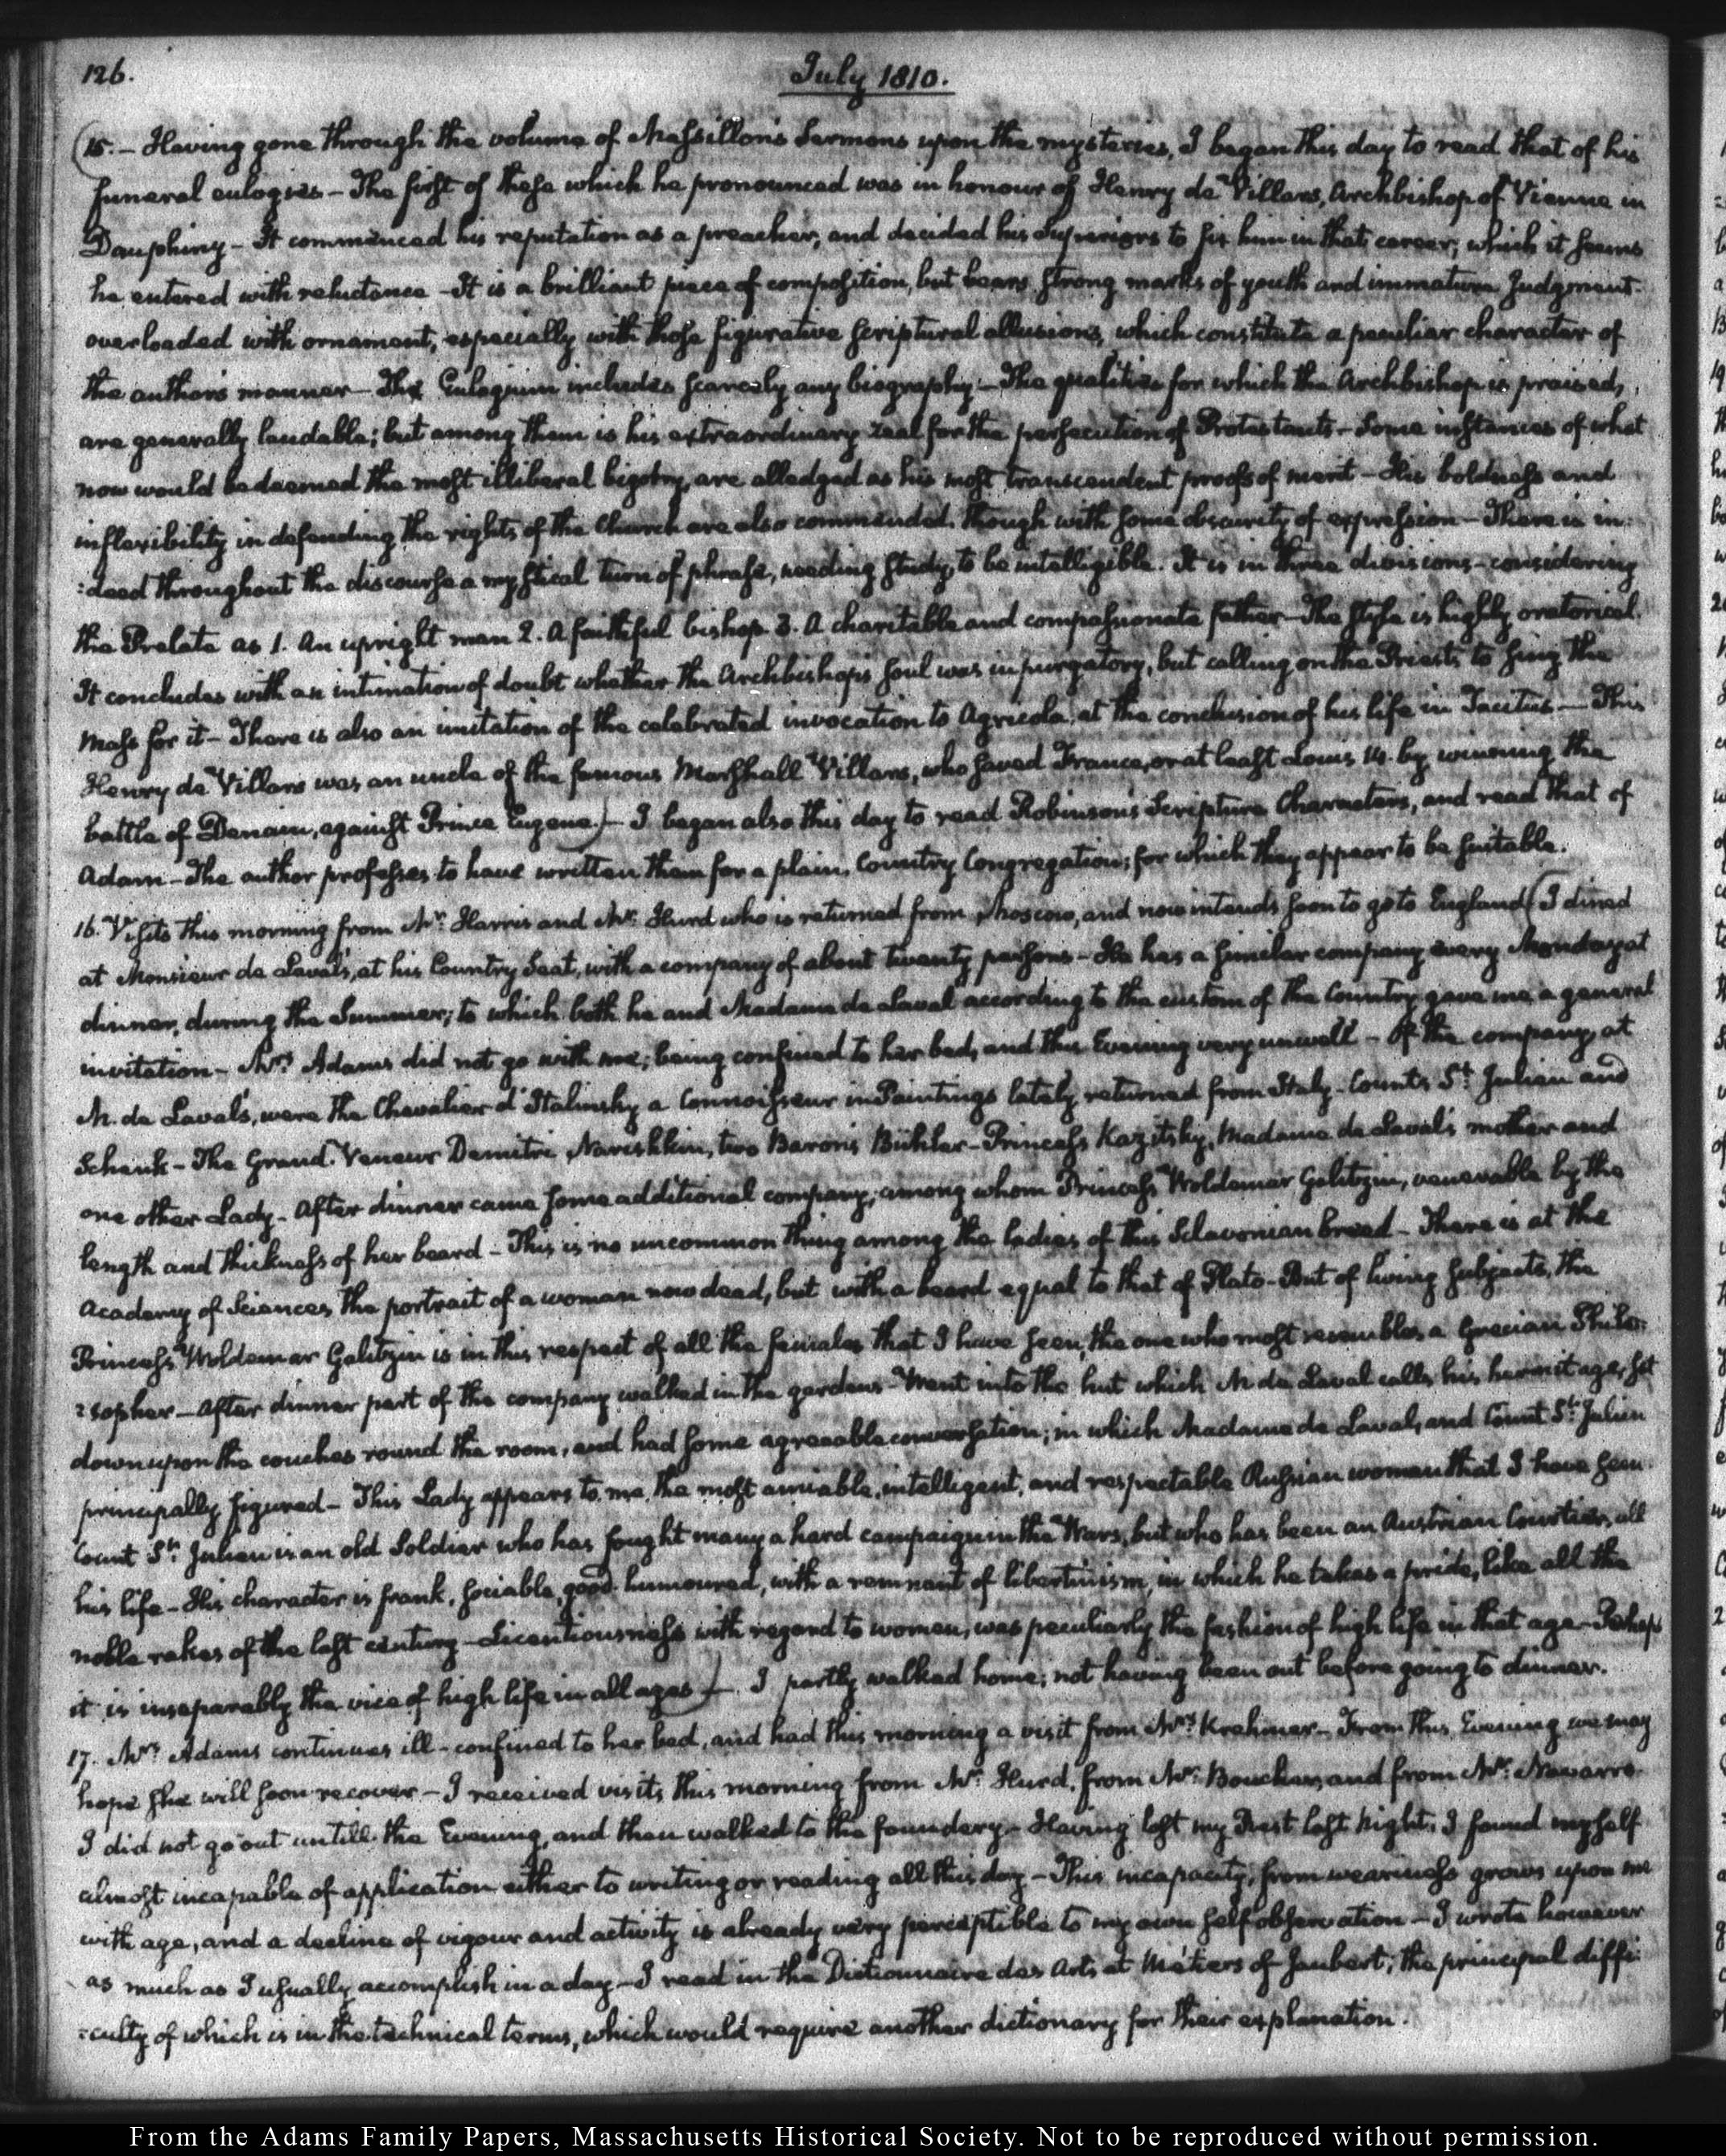 126.
July 1810.
(15.- Having gone through the volume of Massillon's Sermons upon the mysteries, I began this day to read that of his
funeral eulogies - The first of these which he pronounced was in honour of Henry de Villars, Archbishop of Vienne in
Dauphiny - It commenced his reputation as a preacher, and decided his Superiors to fix him in that career; which it seems
he entered with reluctance - It is a brilliant piece of composition, but bears strong marks of youth and immature Judgment.
overloaded with ornament, especially with those figurative scriptural allusions, which constitute a peculiar character of
the author's manner - The Eulogium includes scarcely any biography - The qualities for which the Archbishop is praised,
are generally laudable; but among them is his extraordinary zeal for the persecution of Protestants - Some instances of what
now would be deemed the most illiberal bigotry, are alledged as his most transcendent proofs of merit - His boldness and
inflexibility in defending the rights of the Church are also commended, though with some obscurity of expression - There is in:
:deed throughout the discourse a mystical turn of phrase, needing study, to be intelligible. It is in three divisions - considering
the Prelate as 1. An upright man 2. A faithful bishop 3. A charitable and compassionate father - The style is highly oratorical.
It concludes with an intimation of doubt whether the Archbishop's soul was in purgatory, but calling on the Priests to sing the
Mass for it - There is also an imitation of the celebrated invocation to Agricola, at the conclusion of his life in Tacitus - This
Henry de Villars was an uncle of the famous Marshall Villars, who saved France, or at least Louis 14. by winning the
battle of Denain, against Prince Eugene.) - I began also this day to read Robinson's Scripture Characters, and read that of
Adam - The author professes to have written them for a plain, Country Congregation; for which they appear to be suitable.
16. Visits this morning from Mr. Harris and Mr. Hurd who is returned from Moscow, and now intends soon to go to England (I dined
at Monsieur de Laval's, at his Country Seat, with a company of about twenty persons - He has a similar company every Monday at
dinner, during the Summer; to which both he and Madame de Laval according to the custom of the Country gave me a general
invitation - Mrs. Adams did not go with me; being confined to her bed, and this Evening very unwell - Of the company, at
M. de Laval's, were the Chevalier d'Italinsky a Connoisseur in Paintings lately returned from Italy - Counts St. Julien and
Schenk - The Grand Veneur Demitri Narishkin, two Barons Bühler - Princess Kazitsky, Madame de Laval's mother and
one other Lady - After dinner came some additional company; among whom Princess Woldemar Galitzin, venerable by the
length and thickness of her beard - This is no uncommon thing among the ladies of this Sclavonian breed - There is at the
Academy of Sciences, the portrait of a woman now dead, but with a beard equal to that of Plato - But of living subjects, the
Princess Woldemar Galitzin is in this respect of all the females that I have seen, the one who most resembles a Grecian Philo:
:sopher - After dinner part of the company walked in the gardens - Went into the hut which M de Laval calls his hermitage, sat
down upon the couches round the room, and had some agreeable conversation; in which Madame de Laval, and Count St. Julien
principally figured - This Lady appears to me, the most amiable, intelligent, and respectable Russian woman that I have seen.
Count St. Julien is an old Soldier who has fought many a hard campaign in the Wars, but who has been an Austrian Courtier, all
his life - His character is frank, sociable, good humoured, with a remnant of libertinism, in which he takes a pride, like all the
noble rakes of the last century - Licentiousness with regard to women, was peculiarly the fashion of high life in that age - Perhaps
it is inseparably the vice of high life in all ages) - I partly walked home; not having been out before going to dinner.
17. Mrs. Adams continues ill - confined to her bed, and had this morning a visit from Mrs. Krehmer - From this Evening we may
hope she will soon recover - I received visits this morning from Mr. Hurd, from Mr. Bouchar, and from Mr. Navarro.
I did not go out untill the Evening, and then walked to the foundery - Having lost my Rest last Night, I found myself
almost incapable of application either to writing or reading all this day - This incapacity, from weariness grows upon me
with age, and a decline of vigour and activity is already very perceptible to my own self observation - I wrote however
as much as I usually accomplish in a day - I read in the Dictionnaire des Arts et Métiers of Jaubert; the principal diffi:
:culty of which is in the technical terms, which would require another dictionary for their explanation.
From the Adams Family Papers, Massachusetts Historical Society. Not to be reproduced without permission.